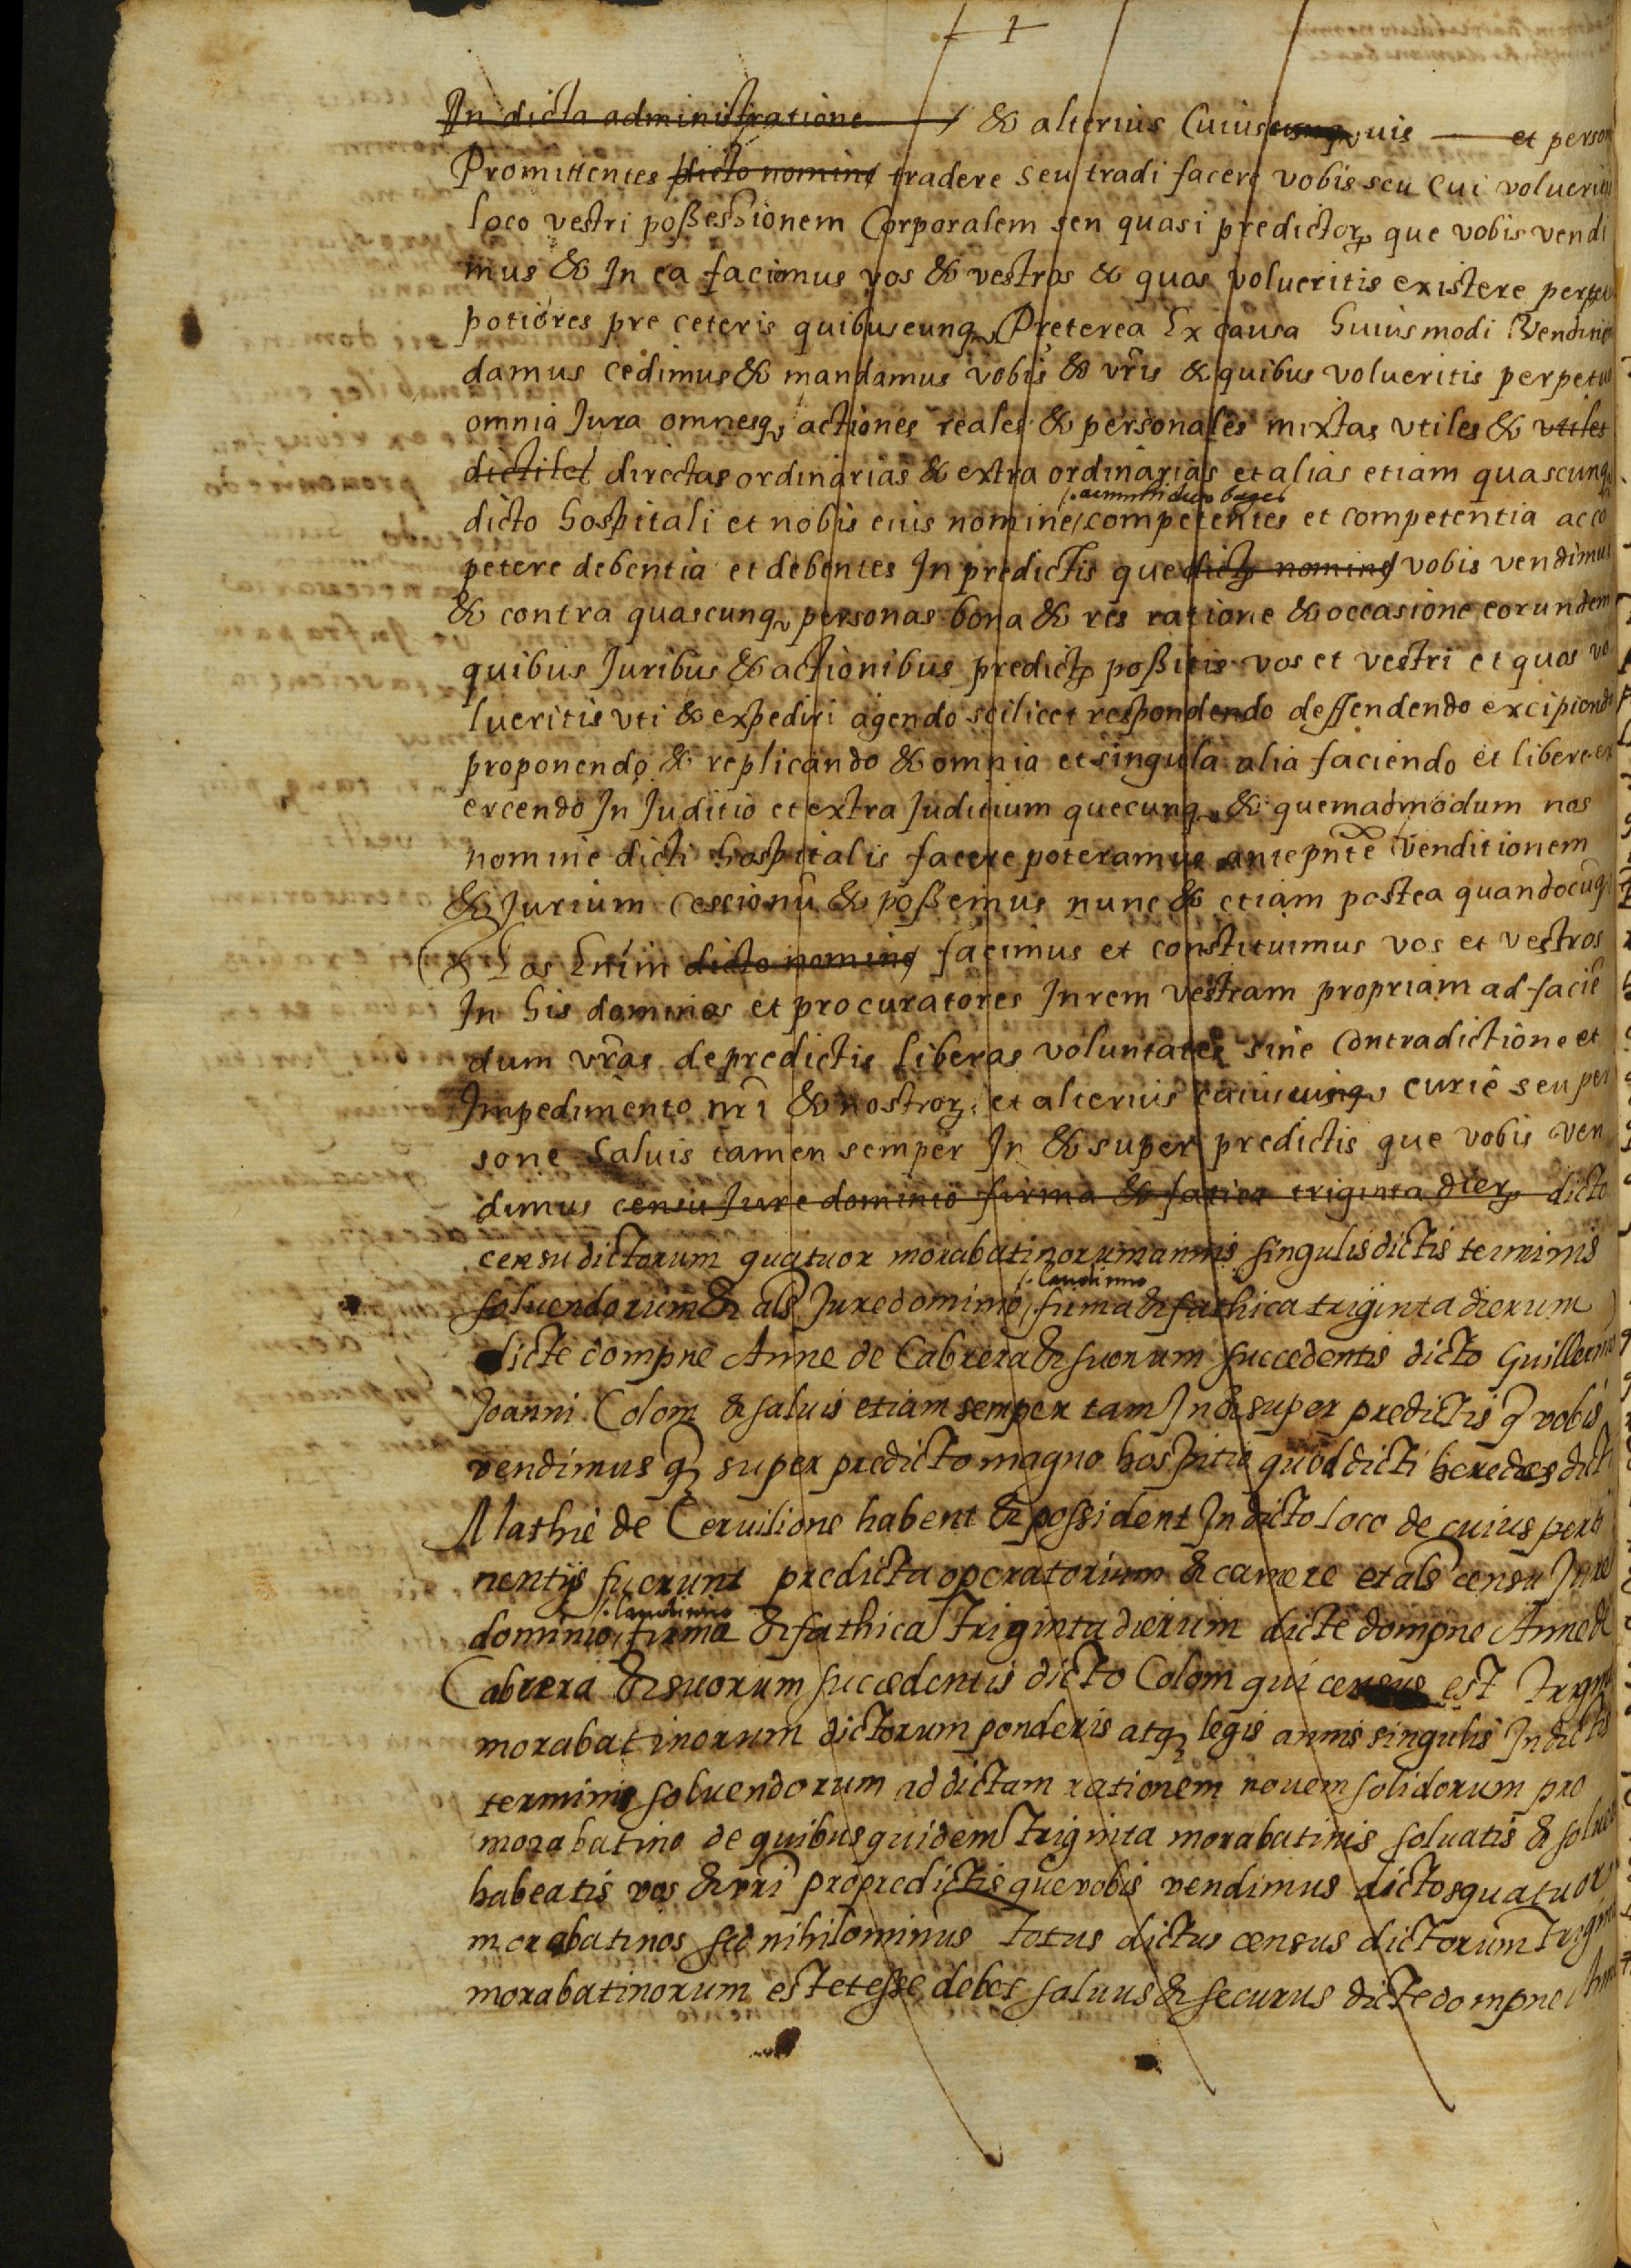 In dicta administratione & alterius Cuius uis et person
Promittentes dicto nomine tradere seu tradi facere vobis seu cui volueritis
loco vestri possessionem Corporalem seu quasi predictorꝝ que vobis vendi
mus & In ea facimus vos & vestros & quos volueritis existere perpetuo
potiores pre ceteris quibuscunqꝫ Preterea Ex causa huiusmodi Vendinis
damus cedimus & mandamus vobis & vr̄is & quibus volueritis perpetuo
omnia Jura omnesqꝫ actiones reales & personales mixtas vtiles & vtiles
dictiles directas ordinarias & extra ordinarias et alias etiam quascunqꝫ
dicto hospitali et nobis eius nomine competentes et competentia ac co
petere debentia et debentes In predictis que dictꝫ nomine vobis vendimus
& contra quascunqꝫ personas bona & res ratione & occasione eorundem
quibus Juribus & actionibus predictꝫ possitis vos et vestri et quos vo
lueritis vti & expediri agendo scilicet respondendo deffendendo excipiendo
proponendo & replicando & omnia et singula alia faciendo et libere ex
ercendo In Juditio et extra Juditium quecunqꝫ & quemadmodum nos
nomine dicti hospitalis facere poteramus ante pn̄te venditionem
& Jurium Cessionū & possemus nunc & etiam postea quandocūqꝫ
Nos Enim dicto nomine facimus et constituimus vos et vestros
In his dominos et procuratores In rem vestram propriam ad faciē
dum vr̄as de predictis liberas voluntates sine contradictione et
Impedimento nr̄i & nostrorꝝ et alterius cuiuscunqꝫ curie seu per
sone saluis tamen semper In & super predictis que vobis ven
dimus censu Jure dominio firma & fatica triginta dierꝝ dicto
censu dictorum quatuor morabatinorum annis singulis dictis terminis
soluendorum & als Jure dominio /laudimio firma & fathica triginta dierum
dicte dompne Anne de Cabrera & suorum succedentis dicto Guillermo
Joanni Colom & saluis etiam semper tam In & super predictis q̄ vobis
vendimus qꝫ super predicto magno hospitio quod dicti heredes dicti
Mathie de Ceruilione habent & possident In dicto loco de cuius perti
nentijs fuerunt predicta operatorium & camere et als censu Jure
dominio /laudimio firma & fathica Triginta dierum dicte dompne Anne de
Cabrera & suorum succedentis dicto Colom qui census est triginta
morabatinorum dictorum ponderis atqꝫ legis annis singulis In dictis
terminis soluendorum ad dictam rationem nouem solidorum pro
morabatino de quibus quidem Triginta morabatinis soluatis & soluere
habeatis vos & vr̄i pro predictis que vobis vendimus dictos quatuor
morabatinos sed nihilominus totus dictus census dictorum Triginta
morabatinorum est et esse debet saluus & securus dicte dompne Anne